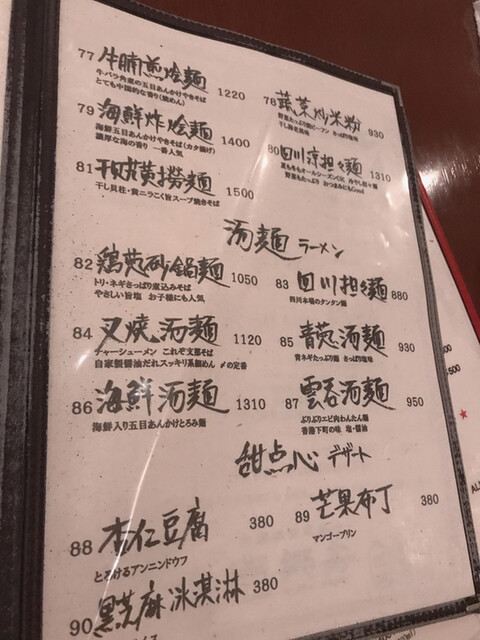 77 牛腩煎烩麺 1220
牛バラ角煮の五目あんかけやきそば
とても中国的な香り(焼めん)
78 蔬菜炒米粉 930
野菜たっぷり館ビーフン さっぱり塩味
干し海老風味
79 海鮮炸烩麺 1400
海鮮五目あんかけやきそば(カタ揚げ)
濃厚な海の香り 一番人気
80 四川凉担々麺 1310
夏も冬もオールシーズンOK 冷やし担々麺
野菜もたっぷり おつまみにもGood
81 干貝黄撈麺 1500
干し貝柱・黄ニラこく旨スープ焼きそば
汤麺 ラーメン
82 鶏葱砂鍋麺 1050
トリ・ネギさっぱり煮込みそば
やさしい旨塩 お子様にも人気
83 四川担々麺 880
四川本場のタンタン麺
84 叉焼汤麺 1120
チャーシューメン これぞ支那そば
自家製醤油だれスッキリ系細めん 〆の定番
85 青葱汤麺 930
青ネギたっぷり麺 さっぱり塩味
86 海鮮汤麺 1310
海鮮入り五目あんかけとろみ麺
87 雲呑汤麺 950
ぷりぷりエビ肉わんたん麺
香港下町の味 塩・醤油
甜点心 デザート
88 杏仁豆腐 380
とろけるアンニンドウフ
89 芒果布丁 380
マンゴープリン
90 黒芝麻冰淇淋 380